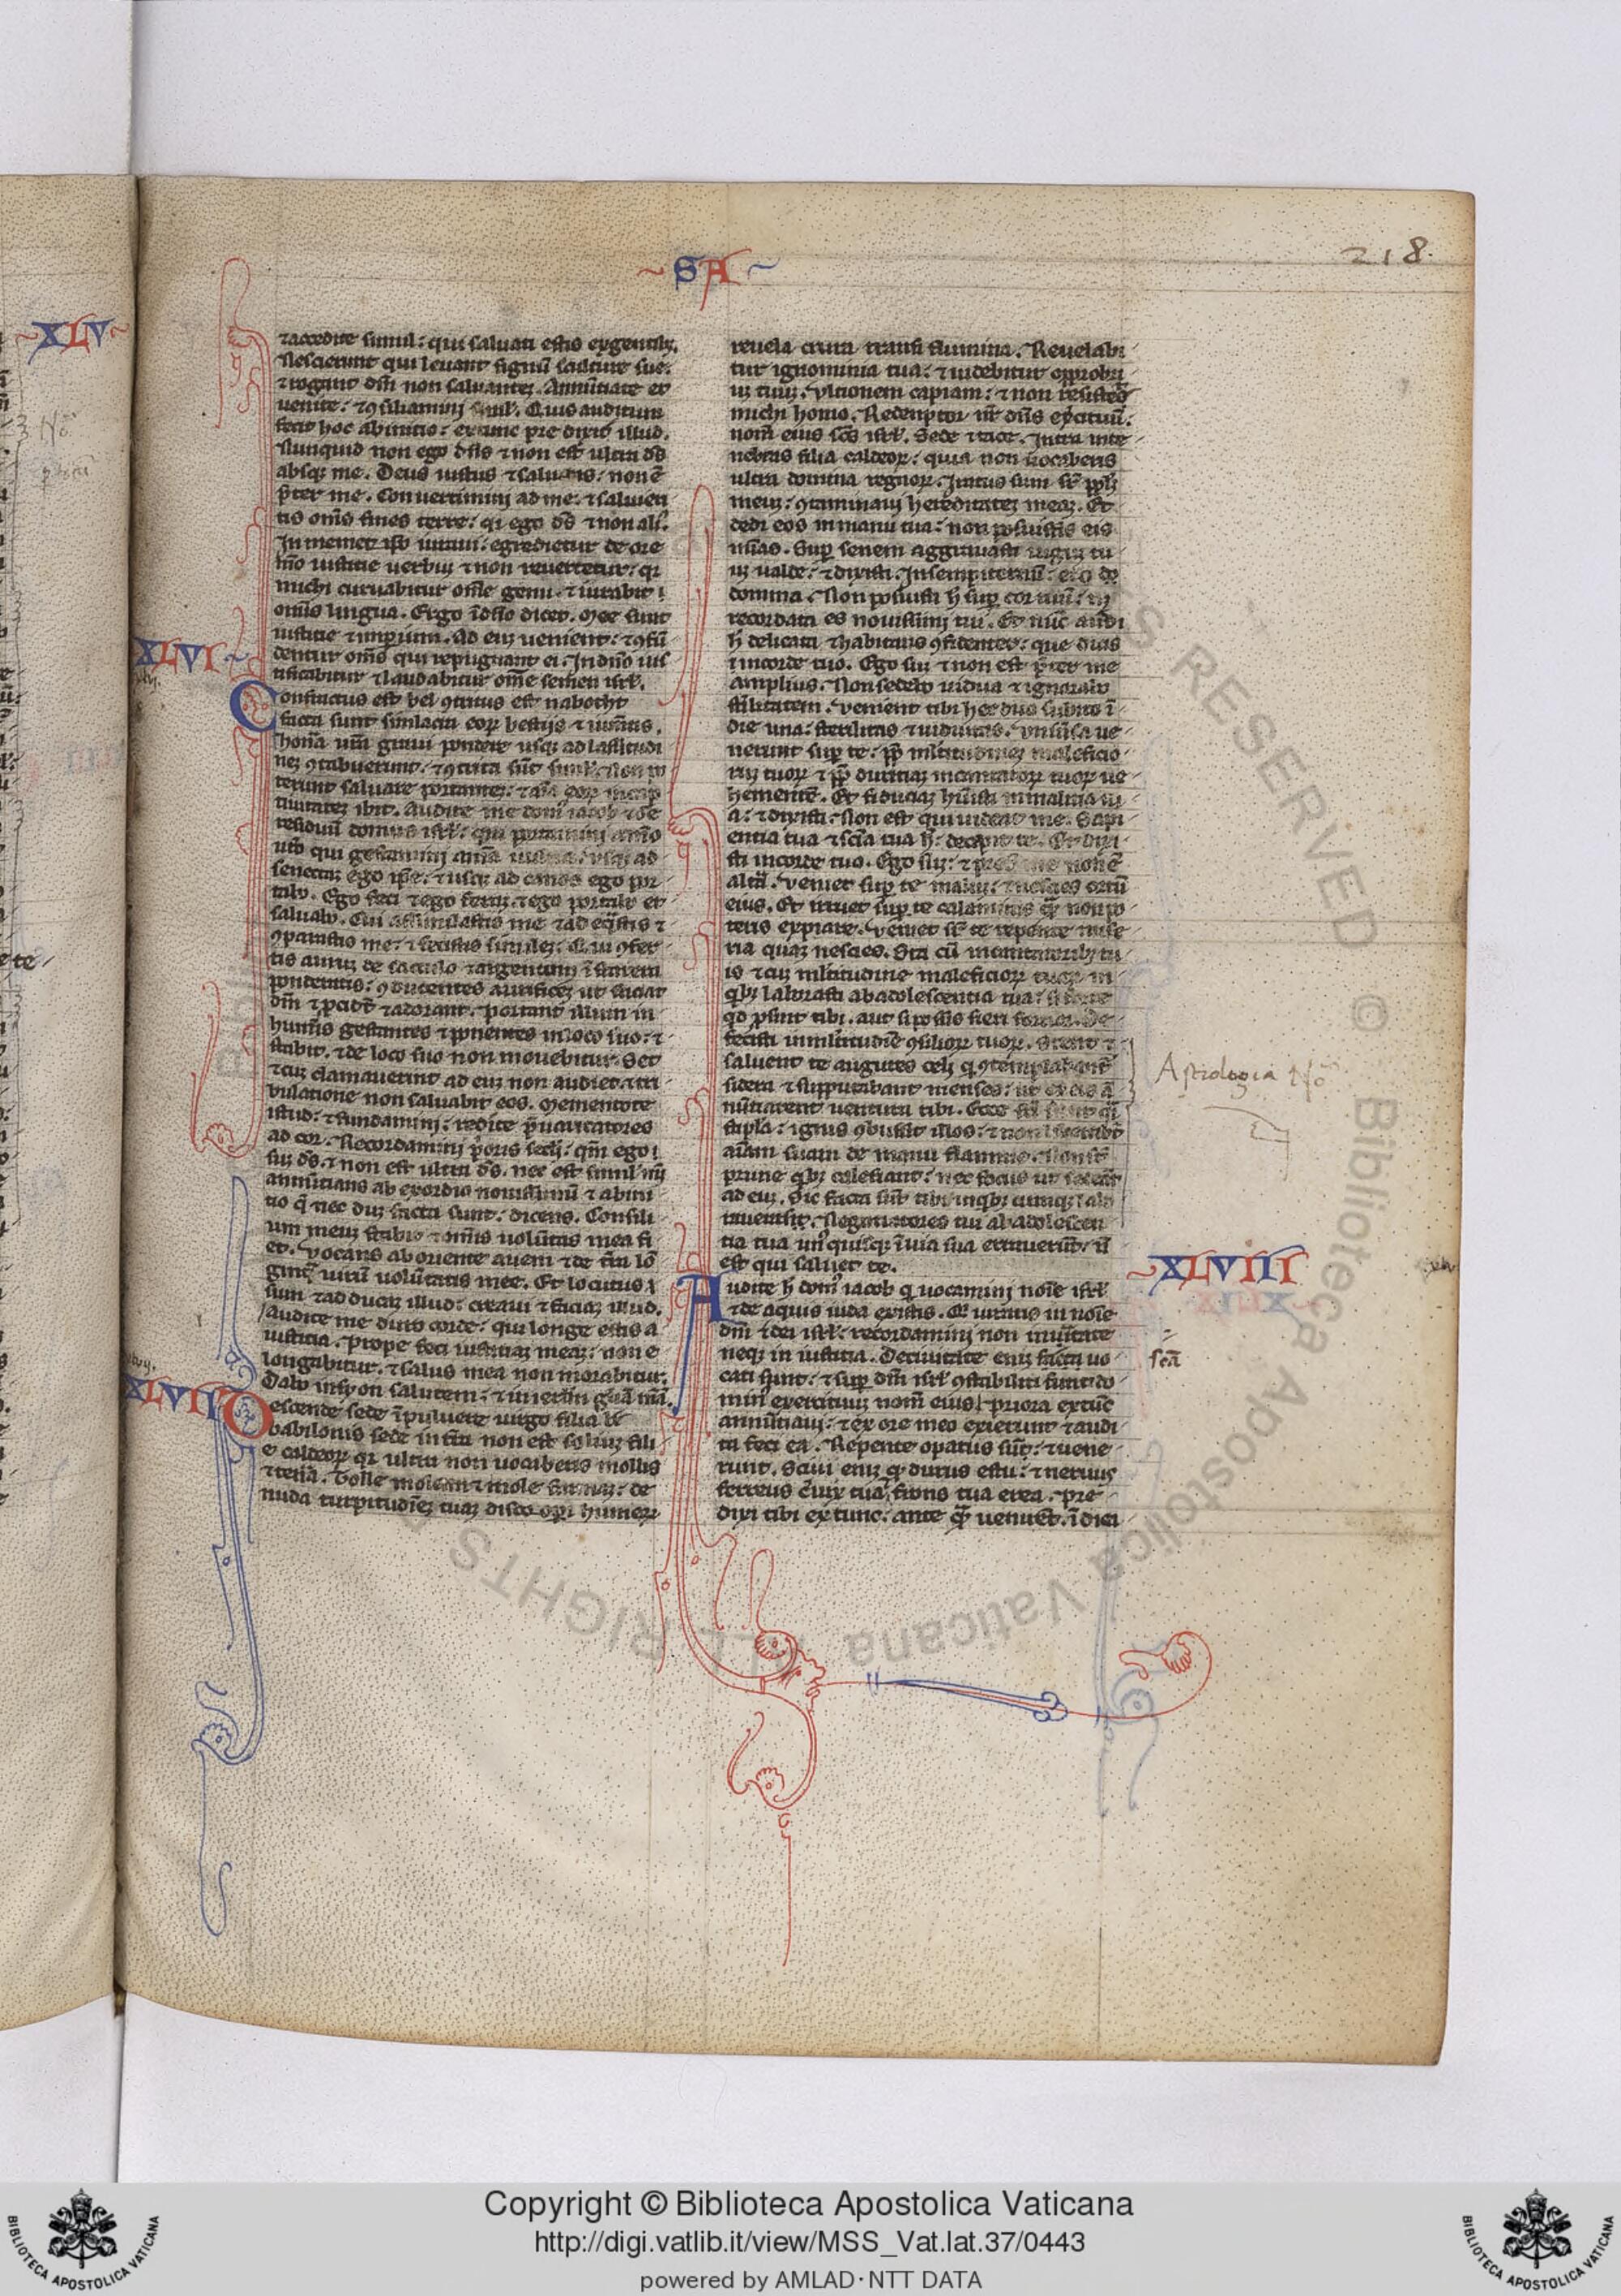 XLV
SA
218.
⁊accedite simul: qui saluati estis ex gentib;.
Nescierunt qui leuant signũ sculture sue.
⁊ rogant dm̃ non saluantez. Annũtiate et
uenite: ⁊ ꝯsiliamini siml'. Quis auditum
fecit hoc abinitio: ex tunc pre dixit illud.
Nunquid non ego dñs ⁊ non est ultra ds̃
absq; me. Deus iustus ⁊ saluans: non ẽ
p̃ter me. Conuertimini ad me: ⁊ salui eri
tis om̃s fines terre: qi ego ds̃ ⁊ non ali'.
In memet ip̃o iuraui: egredietur de ore
m̃o iustitie uerbuz ⁊ non reuertetur: qi
michi curuabitur om̃e genu. ⁊ iurabit
om̃is lingua. Ergo ĩ dño dicet. Mee sunt
iustitie ⁊ imperium. Ad euz uenient: ⁊ ꝯfũ
dentur om̃s qui repugnant ei. In dño ius
tificabitur ⁊ laudabitur om̃e semen isrl'.
XLVI
Confractus est bel ꝯtritus est nabo
facta sunt simlacra eoꝝ bestijs ⁊ iumẽtis.
honã uñ graui pondere usq; ad lassitudi
nez ꝯtabuerunt. ⁊ ꝯtrita sũt siml'. Non po
terunt saluare portantez: ⁊ aĩa eoꝝ in cap
tiuitatez ibit. Audite me dom' iacob ⁊ õe
residuũ domus isrl': qui portamini a meo
utĩo qui gestamini a mea uulua. Usq; ad
senectaz ego ip̃e: ⁊ usq; ad canos ego por
tabo. Ego feci ⁊ ego feraz. ⁊ ego portabo et
saluabo. Cui assimilastis me ⁊ ad eq̃stis ⁊
ꝯparastis me: ⁊ fecistis similez: Qui ꝯfer
tis auruz de sacculo ⁊ argentum ĩ statera
ponderatis: ꝯducentes aurificez ut faciat
dm̃ ⁊ ꝓcidũt ⁊ adorant. Portant illum in
humis gestantes ⁊ ponentes in loco suo: ⁊
stabit. ⁊ de loco suo non mouebitur. Set
⁊ cuz clamauerint ad euz non audiet. ⁊ tri
bulatione non saluabit eos. Mementote
istud: ⁊ fundamini: redite p̃uaricatores
ad cor. Recordamini p̃oris sc̃li: qm̃ ego
suz ds̃. ⁊ non est ultra ds̃. nec est simil' mi
annũtians ab exordio nouissimũ ⁊ abini
tio q̃ nec duz facta sunt: dicens. Consili
um meuz stabit ⁊ om̃is uolũtas mea fi
et. Vocans ab oriente auem ⁊ de t̃ra lõ
ginq̃ uirũ uolũtatis mee. Et locutus
sum ⁊ ad ducaz illud: creaui ⁊ faciaz illud.
Audite me duro corde: qui longe estis a
iustitia. Prope feci iustitiaz meaz: non e
longabitur. ⁊ salus mea non morabitur.
Dabo in syon salutem: ⁊ in ierl'm gl'iã meã.
XLVII
Descende sede ĩ puluere uirgo filia
babilonis sede in t̃ra non est soliuz fili
e caldeoꝝ qi ultra non uocaberis mollis
⁊ tenã. Tolle molam ⁊ mole farinaz: de
nuda turpitudĩez tuaz discoopi humerũ
reuela crura transi flumina. Reuelabi
tur ignominia tua: ⁊ uidebitur opprobri
uz tuuz. Vltionem capiam: ⁊ non resistet
michi homo. Redemptor nr̃ dñs exercituũ:
nom̃ eius sc̃s isrl'. Sede ⁊ tace. Intra in te
nebras filia caldeoꝝ: quia non uocaberis
ultra domina regnoꝝ. Iratus sum sr̃ pplm̃
meuz: ꝯtaminaui hereditatez meaz. Et
dedi eos in manu tua: non posuistis eis
mĩas. Sup̃ senem aggrauasti iuguz tu
uz ualde: ⁊ dixisti. In sempiternũ: ero do
domina. Non posuisti h̃ sup̃ cor tuũ: nẽ
recordata es nouissimi tui. Et nũc audi
h̃ delicata ⁊ habitans ꝯfidenter: que dicis
⁊ in corde tuo. Ego suz ⁊ non est p̃ter me
amplius. Non sedebo uidua ⁊ ignorabo
st̃ilitatem. Venient tibi hec duo subito ĩ
die una: sterilitas ⁊ uiduitas. Vniũsa ue
nerunt sup̃ te: pp̃ mltitudinez maleficio
ruz tuoꝝ ⁊ pp̃ duritiaz incantatoꝝ tuoꝝ ue
hementẽ. Et fiduciaz hũisti in malitia tu
a: ⁊ dixisti. Non est qui uideat me. Sapi
entia tua ⁊ sc̃ia tua h̃: decepit te. Et dixi
sti in corde tuo. Ego suz: ⁊ preter me non ẽ
alt̃a. Veniet sup̃ te maluz: ⁊ nescies ortũ
eius. Et irruet sup̃ te calamitas q̃m non po
teris expiare. Veniet sr̃ te repente mise
ria quaz nescies. Sta cũ incantatorib; tu
is ⁊ cuz mltitudine maleficioꝝ tuoꝝ in
qb; laborasti ab adolescentia tua: si forte
qd p̃sint tibi. aut si possis fieri fortior. De
fecisti in mltitudĩe ꝯsilioꝝ tuoꝝ. Stent ⁊
saluent te augures celi q̃ ꝯtemplabant'
sidera ⁊ supputabant menses: ut ex eis ã
nũtiarent uentura tibi. Ecce
stipla: ignis ꝯbussit illos: ⁊ non
aĩam suam de manu flamme. Non st̃
prune qb; calefiant: nec focus ut sedeãt
ad euz. Sic facta sũt tibi in qb; cumq; labo
raueras. Negotiatores tui ab adolescen
tia tua un' quisq; ĩ uia sua errauerũt: ñ
est qui saluet te.
Astrologia No
XLVIII
Audite h̃ dom' iacob q̃ uocamini noĩe isrl'
⁊ de aquis iuda existis. Q̃ iuratis in noĩe
dm̃ ⁊ dei isrl': recordamini non in uĩtate
neq; in iustitia. De ciuitate enz sancta uo
cati sunt: ⁊ sup̃ dm̃ isrl' ꝯstabiliti sunt: do
min' exercituuz nom̃ eius. Priora ex tũc
annũtiaui: ⁊ ex ore meo exierunt ⁊ audi
ta feci ea. Repente opatus sũ: ⁊ uene
runt. Sciui enz q̃ durus es tu: ⁊ neruus
ferreus c̃uix tua. frons tua erea. Pre
dixi tibi ex tunc: ante q̃m uenirẽt. ĩ dica
sc̃a
ALL RIGHTS RESERVED © Biblioteca Apostolica Vaticana
Copyright © Biblioteca Apostolica Vaticana
http://digi.vatlib.it/view/MSS_Vat.lat.37/0443
powered by AMLAD·NTT DATA
BIBLIOTECA APOSTOLICA VATICANA
BIBLIOTECA APOSTOLICA VATICANA